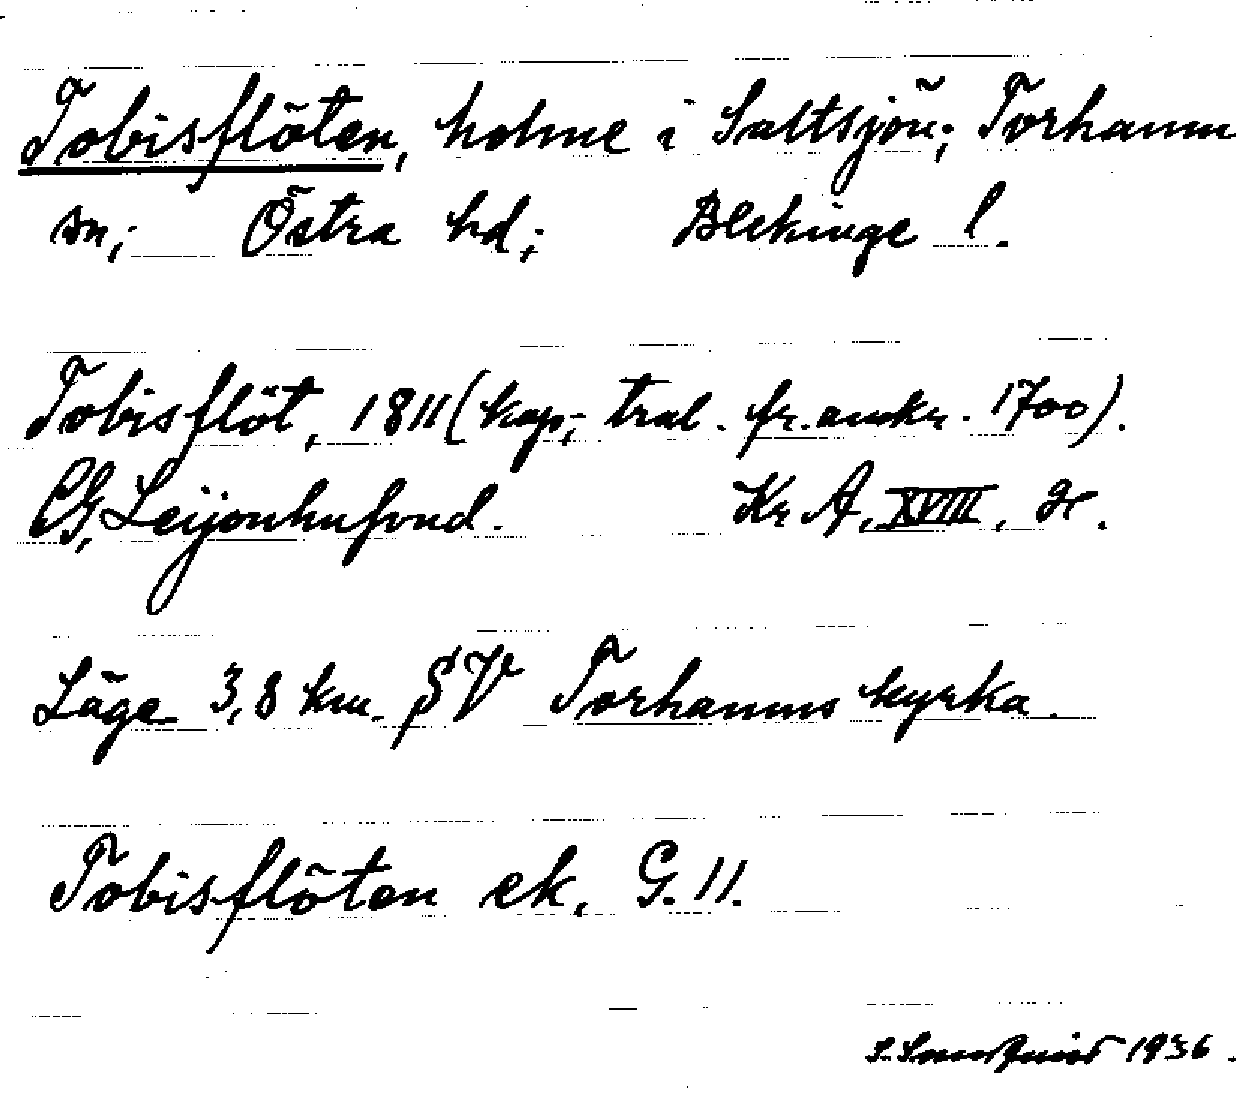 Tobisflöten, holme i Saltsjön; Torhamn
sn; Östra hd; Blekinge l.
Tobisflöt, 1811 (kop; tral. fr. 1700).
CG. Leijonhufvud. Kr A, XVIII,
Läge 3,8 km. SV Torhamns kyrka.
Tobisflöten ek. G. 11.
1936.